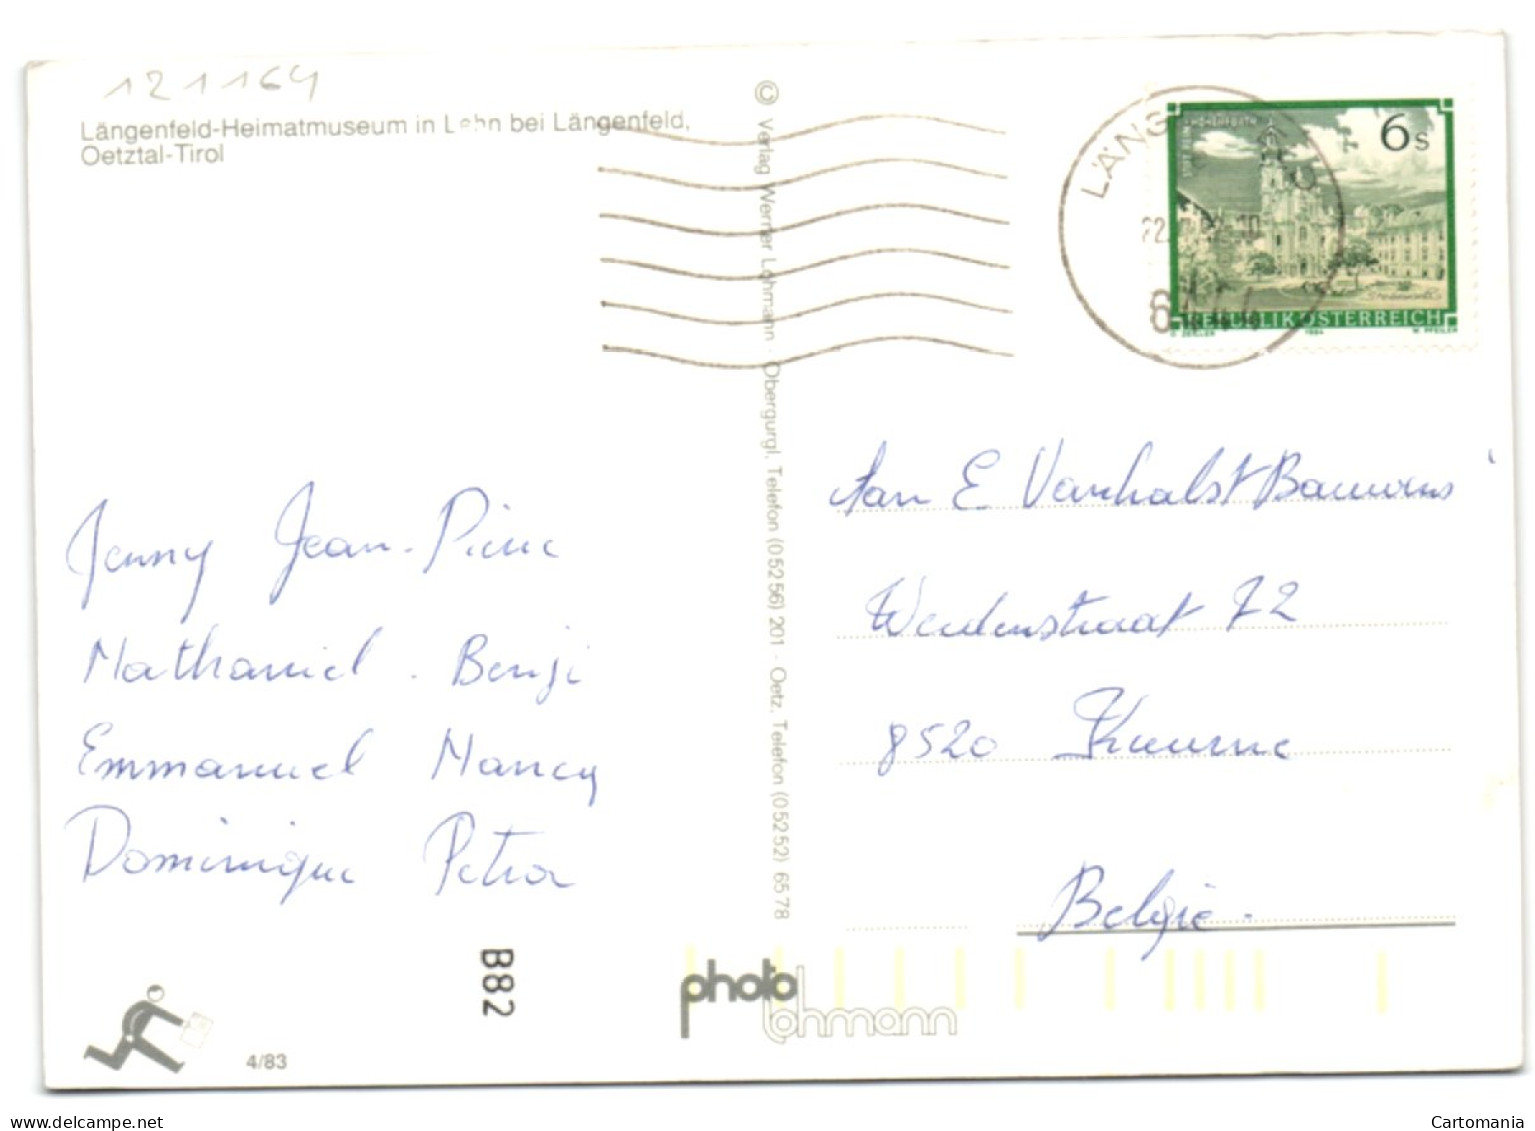 121164
Längenfeld-Heimatmuseum in Lehn bei Längenfeld,
Oetztal-Tirol
© Verlag Werner Lohmann · Obergurgl, Telefon (05256) 201 · Oetz, Telefon (05252) 6578
6s
REPUBLIK ÖSTERREICH
1984
W. PFEILER
Jenny Jean-Pierre
Nathaniel . Benji
Emmanuel Nancy
Dominique Petra
Aan E Vanhalst Bauwens
Weidenstraat 72
8520 Kuurne
België.
B82
photo
lohmann
4/83
delcampe.net
Cartomania